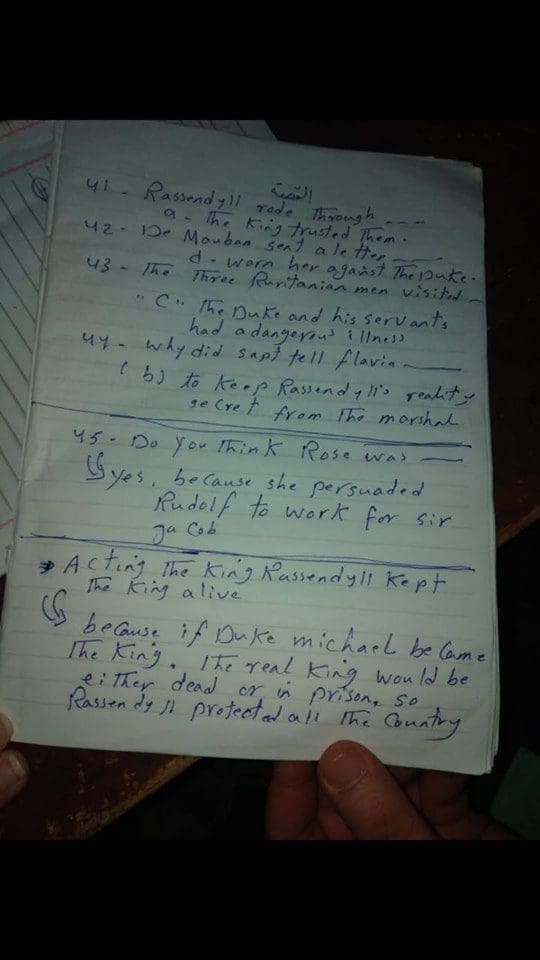 القصة
41 - Rassendyll rode Through ---
a - The King trusted Them.
42 - De Mauban sent a letter ___
d - warn her against The Duke.
43 - The Three Ruritanian men visited _
"C" The Duke and his servants
had a dangerous illness
44 - why did sapt tell flavia ___
(b) to keep Rassendyll's reality
secret from The marshal
45 - Do you Think Rose was ___
yes, because she persuaded
Rudolf to work for sir
Jacob
Acting The King Rassendyll Kept
The King alive
because if Duke michael became
The King. The real King would be
either dead or in prison, so
Rassendyll protected all The Country